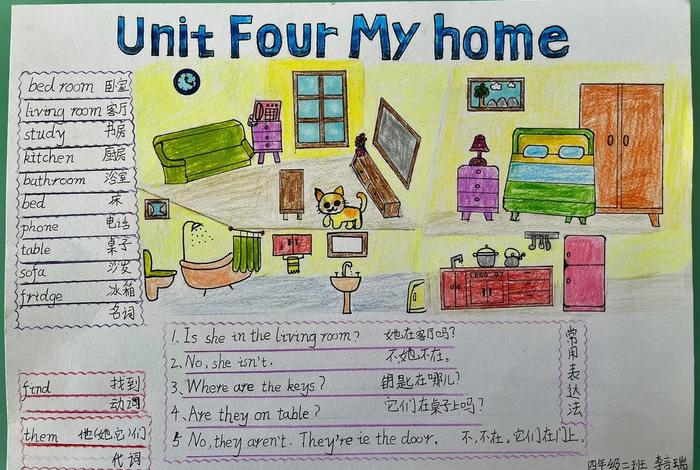 Unit Four My home
bed room 卧室
living room 客厅
study 书房
kitchen 厨房
bathroom 浴室
bed 床
phone 电话
table 桌子
sofa 沙发
fridge 冰箱
名词
find 找到
动词
them 他(她,它)们
代词
1. Is she in the living room? 她在客厅吗?
2. No, she isn't. 不,她不在。
3. Where are the keys? 钥匙在哪儿?
4. Are they on table? 它们在桌子上吗?
5 No, they aren't. They're ie the door. 不,不在。它们在门上。
常用表达法
四年级二班 李言瑞